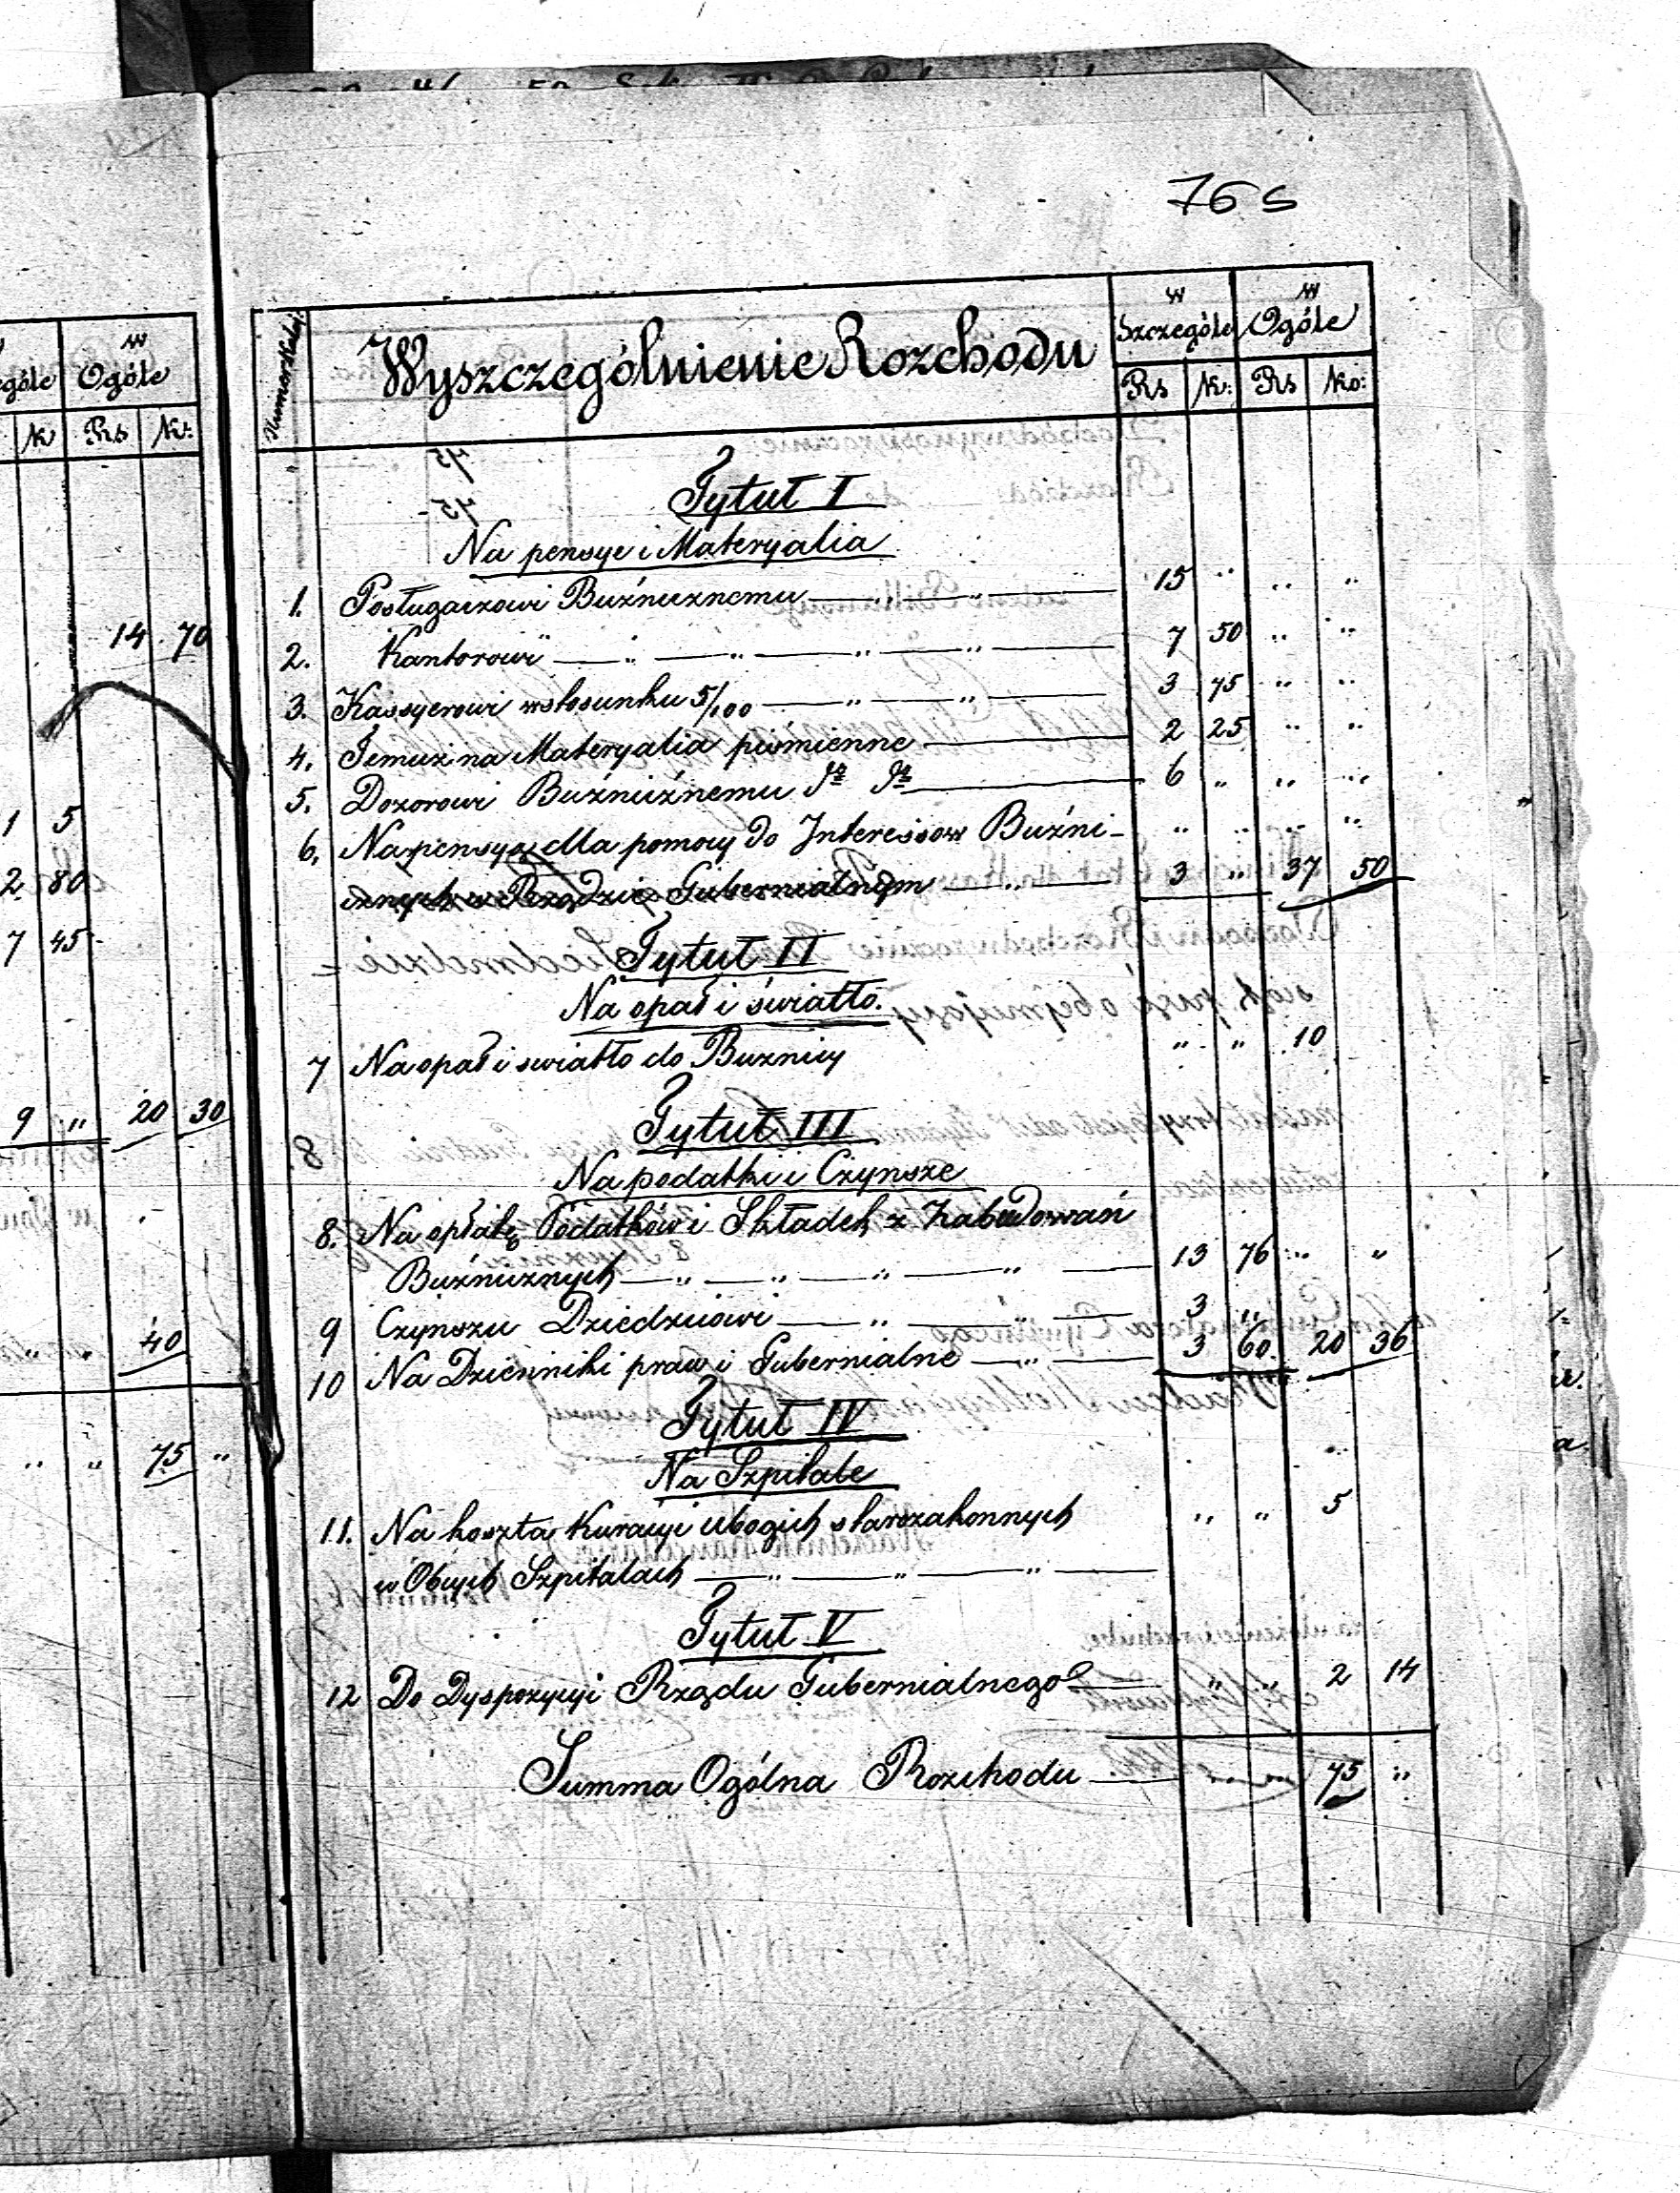 76 s
w Ogóle
Rs Kr:
14 70
1 5
2 80
7 45
9 " 20 30
" " 40
" " 75 "
Numer Kolej:
Wyszczególnienie Rozchodu
w Szczególe
w Ogóle
Rs K: Rs Ko:
Tytuł I
Na pensye i Materyalia
1. Posługaczowi Bużnicznemu 15 " " "
2. Kantorowi 7 50 " "
3. Kassyerowi w stosunku 5/100 3 75 " "
4. Temuż na Materyalia piśmienne 2 25 " "
5. Dozorowi Bużnicznemu do do 6 " " "
6. Na pensyą dla pomocy do Interessow Bużni-
cznych w Rządzie Gubernialnym 3 " 37 50
Tytuł II
Na opał i światło.
7 Na opał i swiatło do Bużnicy " " 10
Tytuł III
Na podatki i Czynsze
8. Na opłatę Podatków i Składek z Zabudowań
Bużnicznych 13 76 " "
9 Czynszu Dziedzicowi 3 "
10 Na Dzienniki praw i Gubernialne 3 60 20 36
Tytuł IV
Na Szpitale
11. Na koszta Kuracyi Ubogich starozakonnych " " 5
w Obcych Szpitalach
Tytuł V
12 Do Dyspozycyi Rządu Gubernialnego " " 2 14
Summa Ogólna Rozchodu 75 "